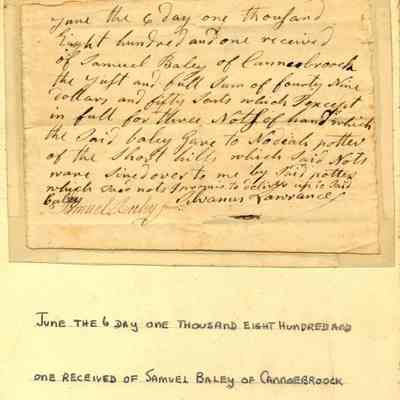 June the 6 day one thousand
Eight hundred and one received
of Samuel Baley of Cannoebroock
the Just and full Sum of fourty Nine
dollars and fifty Sents which I except
in full for three Nots of hand which
the Said baley Gave to Nodiah potter
of the Short hills which Said Nots
ware Sined over to me by Said potter
which Said nots I to deliver up to Said
baley Silvanus Lawrance
Samuel
JUNE THE 6 DAY ONE THOUSAND EIGHT HUNDRED AND
ONE RECEIVED OF SAMUEL BALEY OF CANNOEBROOCK